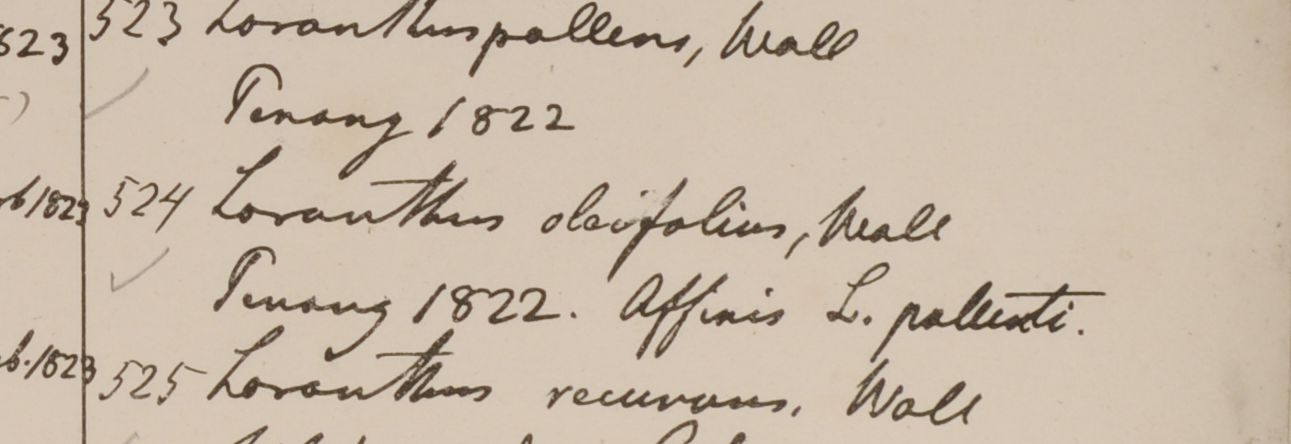 523 Loranthus pallens, Wall
Penang 1822
524 Loranthus oleifolius, Wall
Penang 1822. Affinis L. pallenti.
525 Loranthus recurvans. Wall